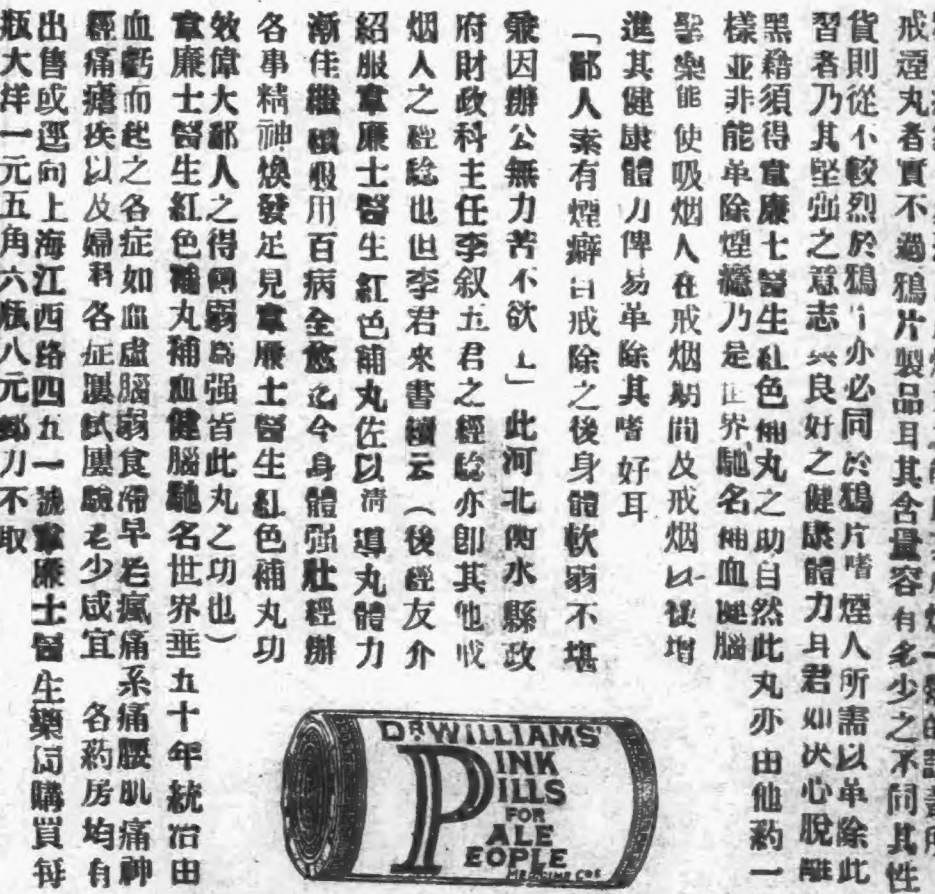 戒烟丸者實不過鴉片製品耳其含量容有多少之不同其性
貨則從不較烈於鴉片亦必同於鴉片嗜煙人所需以革除此
習者乃其堅強之意志與良好之健康體力耳君如決心脫離
黑籍須得韋廉士醫生紅色補丸之助自然此丸亦由他葯一
樣並非能革除煙癮乃是世界馳名補血健腦
聖藥能使吸烟人在戒烟期間及戒烟以後增
進其健康體力俾易革除其嗜好耳
「鄙人素有煙癖自戒除之後身體軟弱不堪
兼因辦公無力苦不欲上」此河北 水縣政
府財政科主任李叙五君之經驗亦即其他戒
烟人之經驗也但李君來書續云（後經友介
紹服韋廉士醫生紅色補丸佐以清導丸體力
漸佳繼續服用百病全愈迄今身體强壯經辦
各事精神煥發足見韋廉士醫生紅色補丸功
效偉大鄙人之得轉弱爲强皆此丸之功也）
韋廉士醫生紅色補丸補血健腦馳名世界垂五十年統治由
血虧而起之各症如血虛腦弱食滯早老瘋痛系痛腰肌痛神
經痛 疾以及婦科各症屢試屢驗老少咸宜 各葯房均有
出售或逕向上海江西路四五一號韋廉士醫生藥局購買每
瓶大洋一元五角六瓶八元郵力不取
DR WILLIAMS'
PINK
PILLS
FOR
PALE
PEOPLE
MEDICINE COS